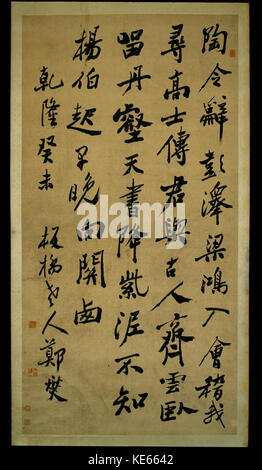 陶令辭彭澤梁鴻入會稽我
尋高士傳君與古人齊雲臥
留丹壑天書降紫泥不知
楊伯起早晚向關西
乾隆癸未 板橋老人鄭燮
alamy
KE6642